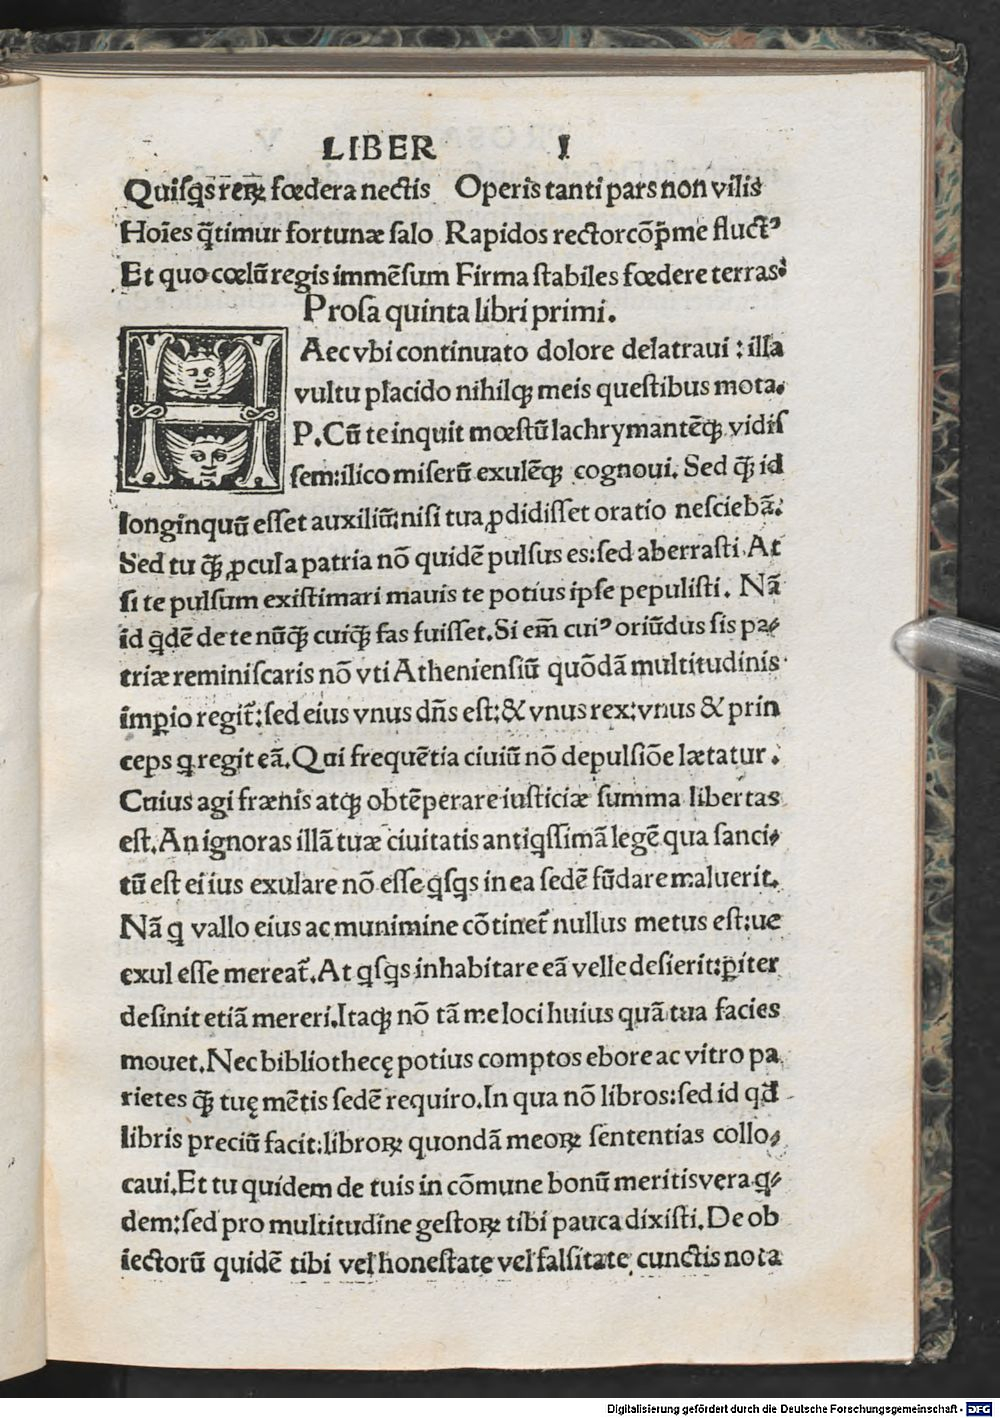 LIBER I
Quiſq̃s reꝝ fœdera nectis Operis tanti pars non vilis
Hoīes q̃timur fortunæ ſalo Rapidos rector cõp̃me fluctꝰ
Et quo cœlũ regis immẽſum Firma ſtabiles fœdere terras.
Proſa quinta libri primi.
HAec vbi continuato dolore delatraui : illa
vultu placido nihilqꝫ meis queſtibus mota.
P. Cũ te inquit mœſtũ lachrymantẽqꝫ vidiſ
ſem: ilico miſerũ exulẽqꝫ cognoui. Sed q̃ꝫ id
longinquũ eſſet auxiliũ: niſi tua ꝓdidiſſet oratio neſciebã.
Sed tu q̃ꝫ ꝓcul a patria nõ quidẽ pulſus es: ſed aberraſti. At
ſi te pulſum exiſtimari mauis te potius ipſe pepuliſti. Nã
id q̇dẽ de te nũq̃ꝫ cuiq̃ꝫ fas fuiſſet. Si em̃ cuiꝰ oriũdus ſis pa⸗
triæ reminiſcaris nõ vti Athenienſiũ quõdã multitudinis
imꝑio regit̃: ſed eius vnus dñs eſt: & vnus rex: vnus & prin
ceps q regit eã. Qui frequẽtia ciuiũ nõ depulſiõe lætatur.
Cuius agi frænis atqꝫ obtẽperare iuſticiæ ſumma libertas
eſt. An ignoras illã tuæ ciuitatis antiqſſimã legẽ qua ſanci⸗
tũ eſt ei ius exulare nõ eſſe qſqs in ea ſedẽ fũdare maluerit.
Nã q vallo eius ac munimine cõtinet̃ nullus metus eſt: ue
exul eſſe mereat̃. At qſqs inhabitare eã velle deſierit: ꝑiter
deſinit etiã mereri. Itaqꝫ nõ tã me loci huius quã tua facies
mouet. Nec bibliothecę potius comptos ebore ac vitro pa
rietes q̃ꝫ tuę mẽtis ſedẽ requiro. In qua nõ libros: ſed id qd̃
libris preciũ facit: libroꝝ quondã meoꝝ ſententias collo⸗
caui. Et tu quidem de tuis in cõmune bonũ meritis vera q⸗
dem: ſed pro multitudine geſtoꝝ tibi pauca dixiſti. De ob
iectorũ quidẽ tibi vel honeſtate vel falſitate cunctis nota
Digitalisierung gefördert durch die Deutsche Forschungsgemeinschaft - DFG